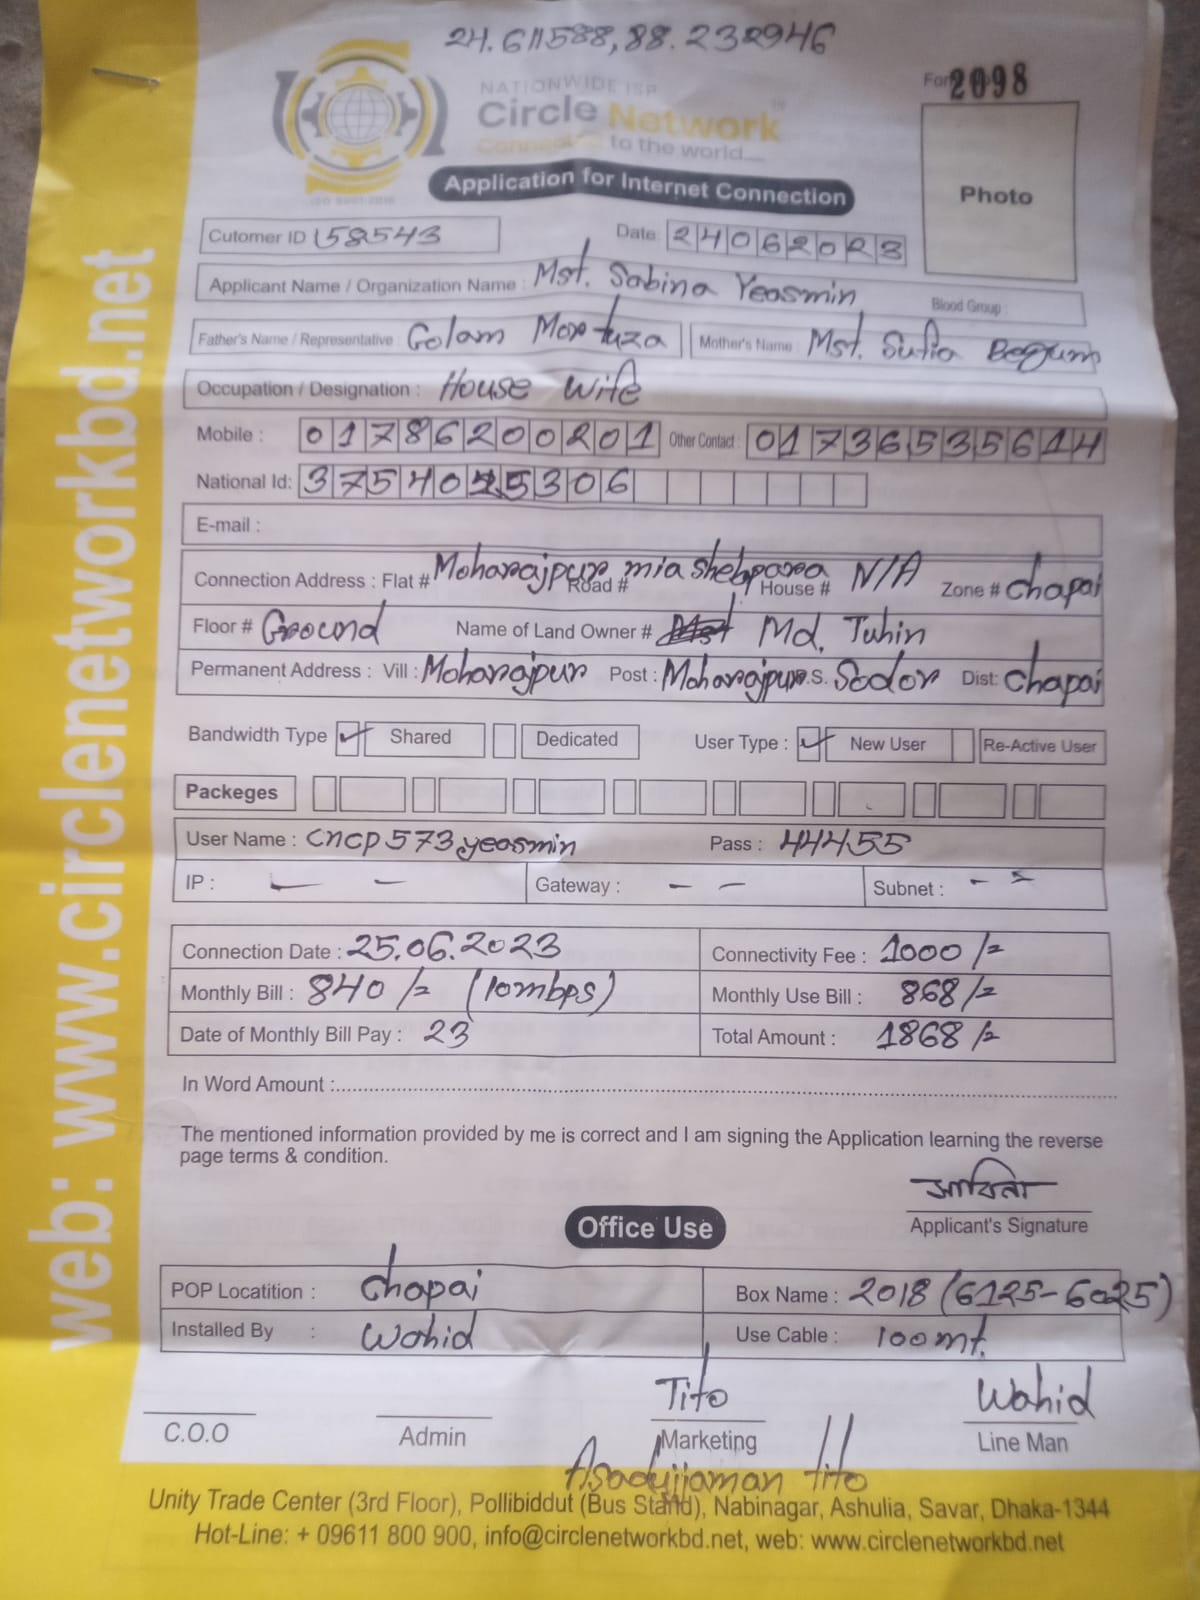 24.611588, 88.232946
NATIONWIDE ISP
Circle Network
Connect to the world...
Application for Internet Connection
2098
Photo
Cutomer ID 158543
Date: 24062023
Applicant Name / Organization Name : Mst. Sabina Yeasmin Blood Group :
Father's Name / Representative : Golam Mortuza Mother's Name : Mst. Sufia Begum
Occupation / Designation : House Wife
Mobile : 01786200201 Other Contact : 01736535614
National Id: 375405306
E-mail :
Connection Address : Flat # Moharajpur mia shebpara Road # House # N/A Zone # Chapai
Floor # Ground Name of Land Owner # Md. Tuhin
Permanent Address : Vill : Moharajpur Post : Moharajpur P.S. Sodor Dist: Chapai
Bandwidth Type Shared Dedicated User Type : New User Re-Active User
Packeges
User Name : cncp573yeasmin Pass : 44455
IP : — — Gateway : — — Subnet : — —
Connection Date : 25.06.2023 Connectivity Fee : 1000/=
Monthly Bill : 840/= (10mbps) Monthly Use Bill : 868/=
Date of Monthly Bill Pay : 23 Total Amount : 1868/=
In Word Amount :
The mentioned information provided by me is correct and I am signing the Application learning the reverse
page terms & condition.
সাবিনা
Applicant's Signature
Office Use
POP Locatition : Chapai Box Name : 2018 (6125-6025)
Installed By : Wahid Use Cable : 100mt.
Tito Wahid
C.O.O Admin Marketing Line Man
Asadujjaman tito
Unity Trade Center (3rd Floor), Pollibiddut (Bus Stand), Nabinagar, Ashulia, Savar, Dhaka-1344
Hot-Line: + 09611 800 900, info@circlenetworkbd.net, web: www.circlenetworkbd.net
web: www.circlenetworkbd.net